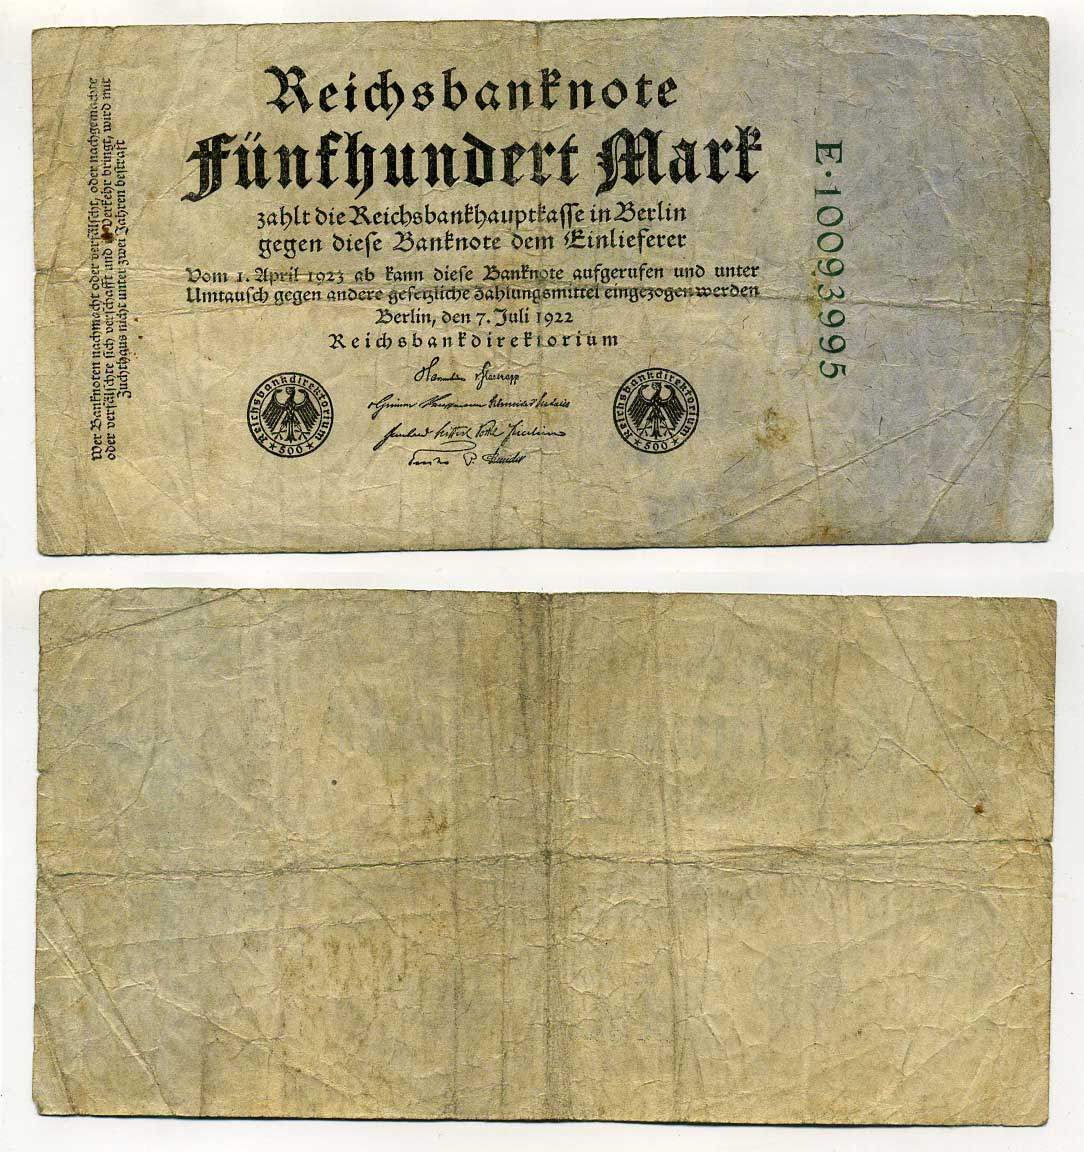 Reichsbanknote
Fünfhundert Mark
zahlt die Reichsbankhauptkasse in Berlin
gegen diese Banknote dem Einlieferer
Vom 1. April 1923 ab kann diese Banknote aufgerufen und unter
Umtausch gegen andere gesetzliche Zahlungsmittel eingezogen werden
Berlin, den 7. Juli 1922
Reichsbankdirektorium
Reichsbankdirektorium
500
Reichsbankdirektorium
500
Wer Banknoten nachmacht oder verfälscht, oder nachgemachte
oder verfälschte sich verschafft und in Verkehr bringt, wird mit
Zuchthaus nicht unter zwei Jahren bestraft
E·10093995